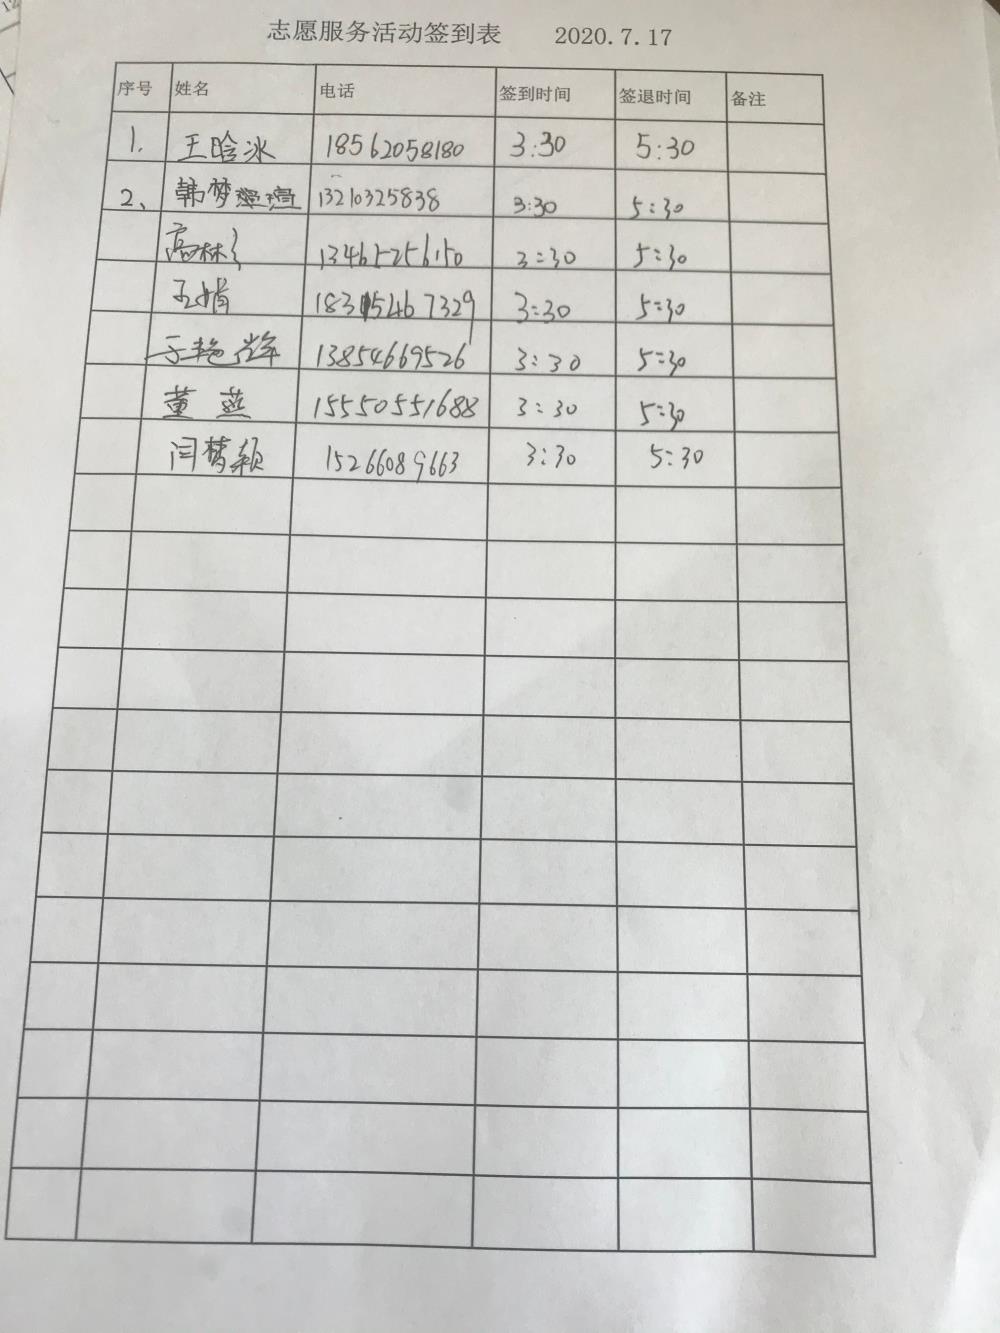 志愿服务活动签到表 2020.7.17
序号 姓名 电话 签到时间 签退时间 备注
1. 王晗冰 18562058180 3:30 5:30
2、 韩梦 13210325838 3:30 5:30
高林 13465256150 3:30 5:30
王娟 18315467329 3:30 5:30
于艳辉 13854669526 3:30 5:30
董燕 15550551688 3:30 5:30
闫梦颖 15266089663 3:30 5:30